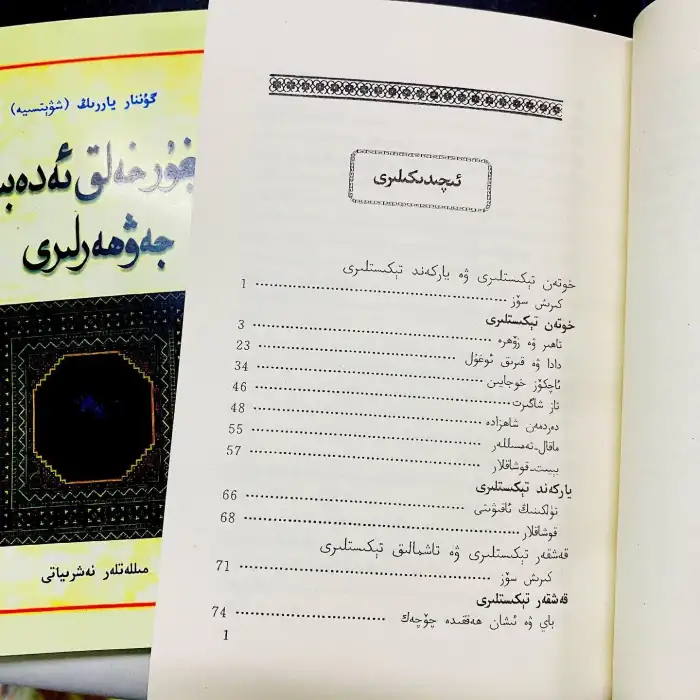 گۇننار ياررىڭ (شۋېتسىيە)
خەلق ئەدەب
جەۋھەرلىرى
مىللەتلەر نەشرىياتى
ئىچىدىكىلىرى
خوتەن تېكىستلىرى ۋە ياركەند تېكىستلىرى
كىرىش سۆز 1
خوتەن تېكىستلىرى
تاھىر ۋە زۆھرە 3
دادا ۋە قىرىق ئوغۇل 23
ئاچكۆز خوجايىن 34
تاز شاگىرت 46
دەردمەن شاھزادە 48
ماقال-تەمسىللەر 55
بېيىت-قوشاقلار 57
ياركەند تېكىستلىرى
تۈلكىنىڭ ئاقىۋىتى 66
قوشاقلار 68
قەشقەر تېكىستلىرى ۋە تاشمالىق تېكىستلىرى
كىرىش سۆز 71
قەشقەر تېكىستلىرى
باي ۋە ئىشان ھەققىدە چۆچەك 74
1